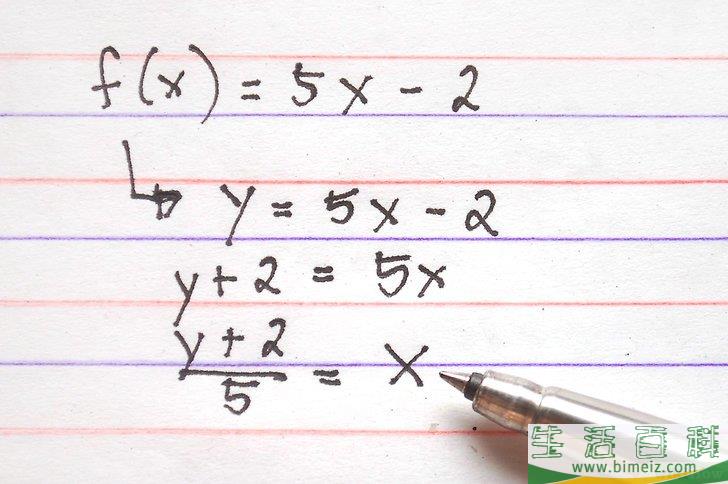 f(x) = 5x - 2
↳ y = 5x - 2
y + 2 = 5x
y + 2
5 = x
生活百科
www.bimeiz.com